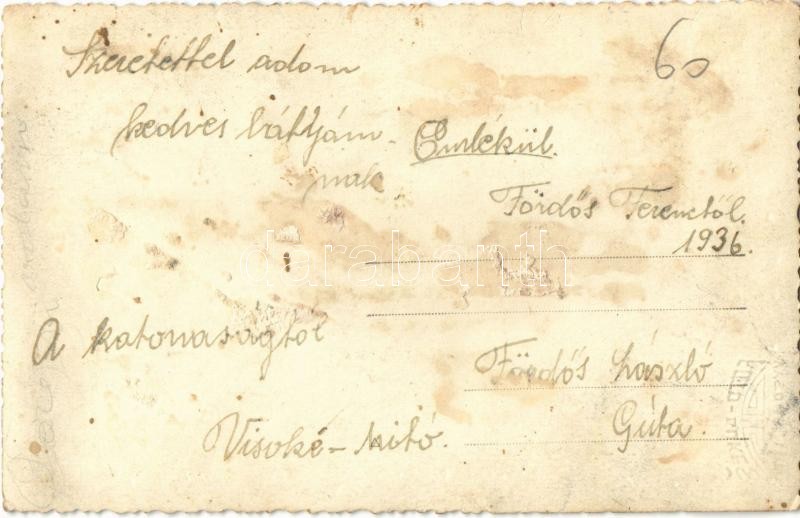 Szeretettel adom
kedves bátyám-
nak
Emlékül.
Fördős Ferenctől.
1936.
60
darabanth
A katonaságtól
Visoké-Mitó.
Fördős László
Gúta.